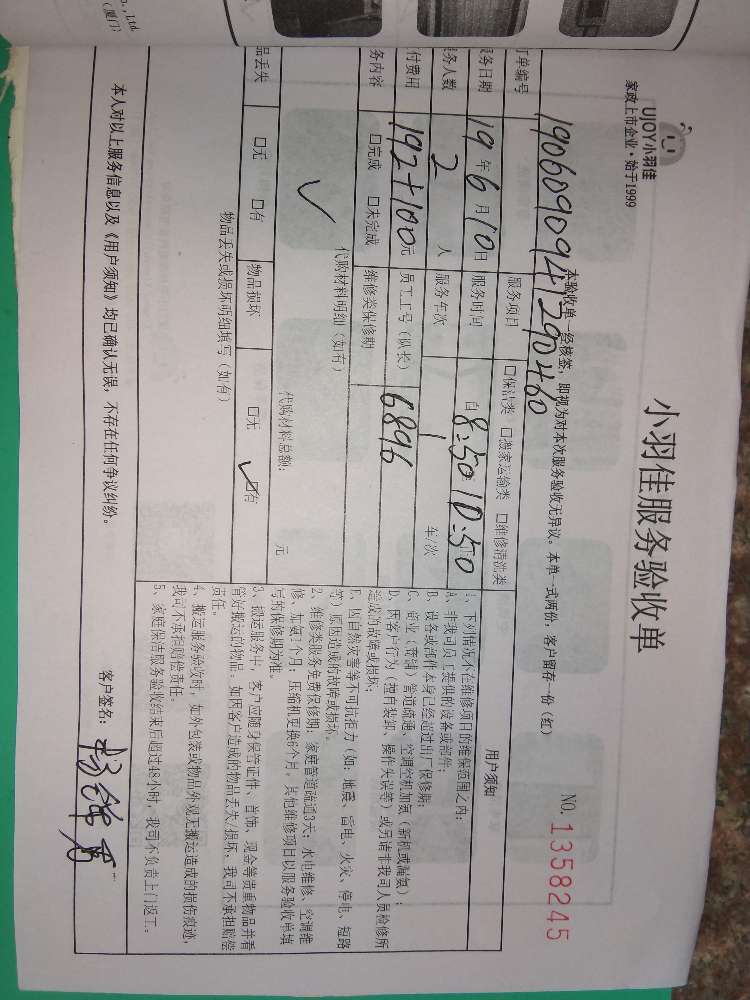 小羽佳服务验收单
UJOY小羽佳
家政上市企业·始于1999
NO.1358245
本验收单一经核签，即视为对本次服务验收无异议。本单一式两份，客户留存一份（红）
订单编号 1906090941290460
服务项目 □保洁类 □搬家运输类 □维修清洗类
服务日期 19年6月10日 服务时间 自8:50 10:50
务人数 2人 服务车次 1 车/次
付费用 192+100元 员工工号（队长） 6896
务内容 □完成 □未完成 维修类保修期
代购材料明细（如有）
代购材料总额： 元
品丢失 □无 □有 物品损坏 □无 □有
物品丢失或损坏明细填写（如有）
用户须知
1、下列情况不在维修项目的维保范围之内：
A、非我司员工提供的设备或部件；
B、设备或部件本身已经超过出厂保修期；
C、商业（商铺）管道疏通、空调空机加氨（新机或漏氨）；
D、因客户行为（擅自装卸、操作失误等）或另请非我司人员检修所
造成的故障或损坏；
E、因自然灾害等不可抗拒力（如：地震、雷电、火灾、停电、短路
等）原因造成的故障或损坏。
2、维修类服务免费保修期：家庭管道疏通3天；水电维修、空调维
修、加氨1个月；压缩机更换6个月，其他维修项目以服务验收单填
写的保修期为准。
3、搬运服务中，客户应随身保管证件、首饰、现金等贵重物品并看
管好搬运的物品，如因客户造成的物品丢失/损坏，我司不承担赔偿
责任。
4、搬运服务验收时，如外包装或物品外观无搬运造成的损伤痕迹，
我司不承担赔偿责任。
5、家庭保洁服务验收结束后超过48小时，我司不负责上门返工。
本人对以上服务信息以及《用户须知》均已确认无误，不存在任何争议纠纷。
客户签名：
., Ltd
（厦门）